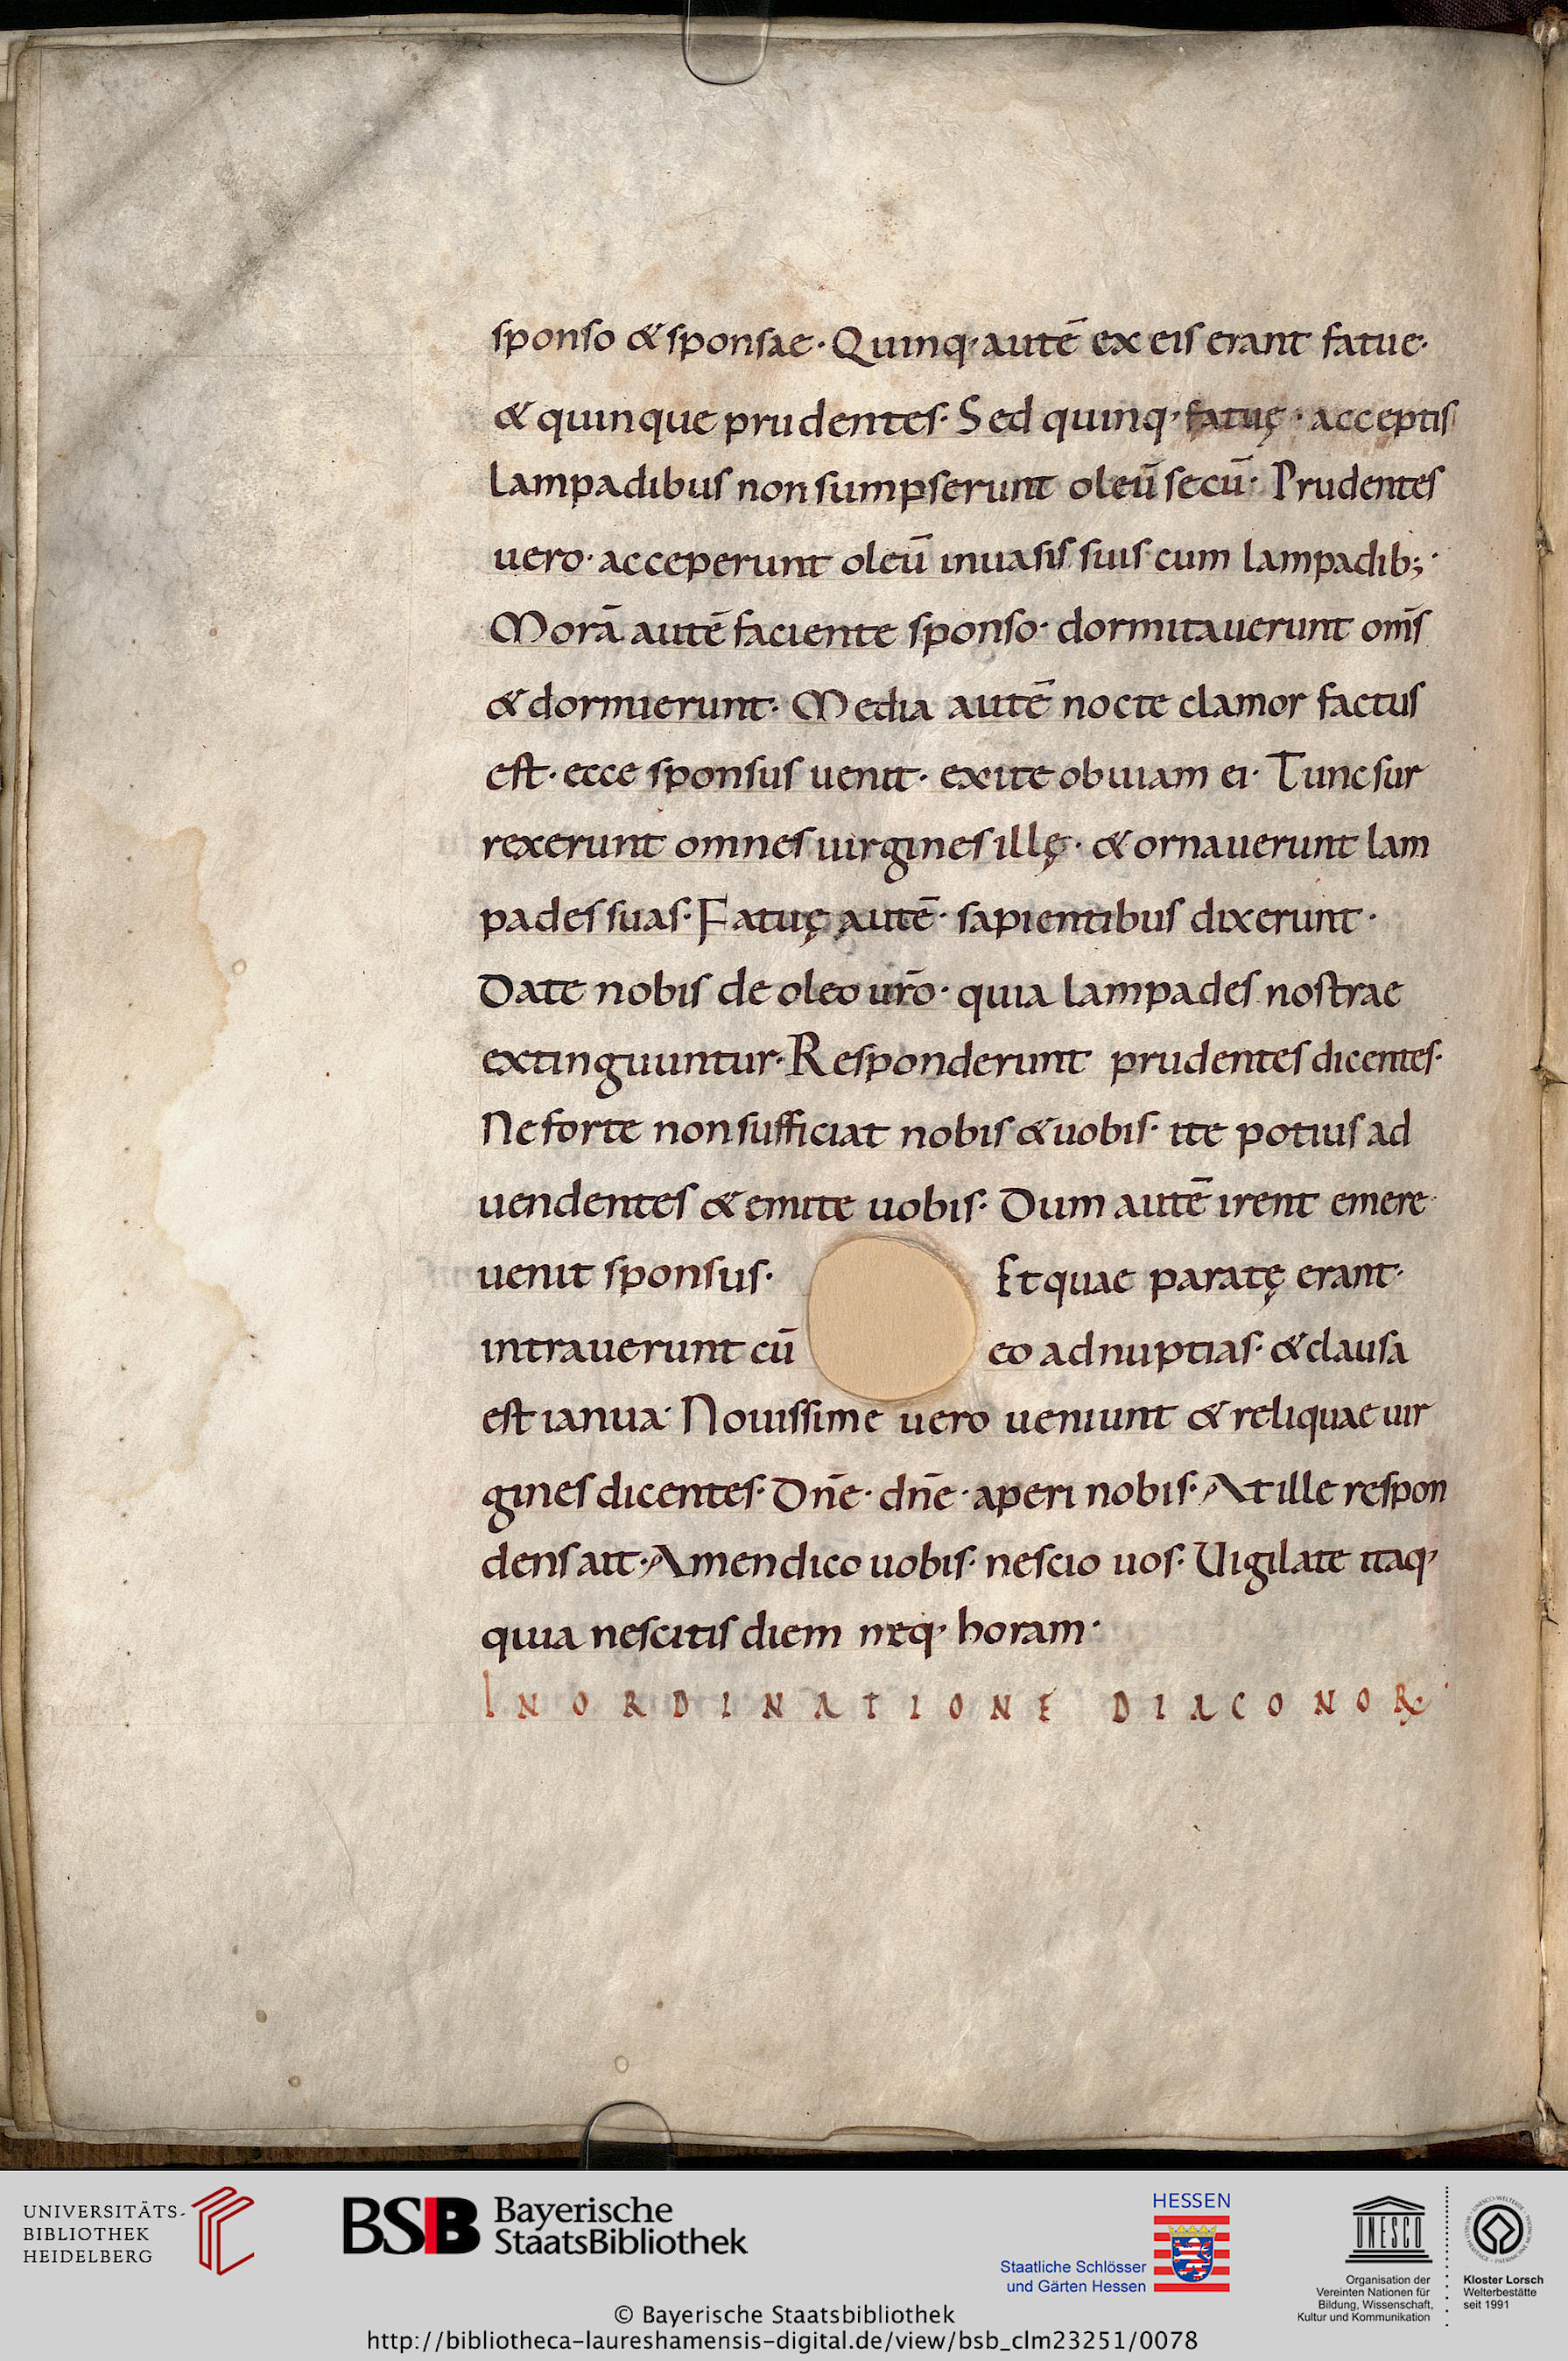 sponso & sponsae· Quinq· autē ex eis erant fatue·
& quinque prudentes· Sed quinq· fatuę· acceptis
lampadibus non sumpserunt oleū secū· Prudentes
uero· acceperunt oleū inuasis suis cum lampadib;·
Morā autē faciente sponso· dormitauerunt om̄s
& dormierunt· Media autē nocte clamor factus
est· ecce sponsus uenit· exite obuiam ei· Tunc sur
rexerunt omnes uirgines illę· & ornauerunt lam
pades suas· Fatuę autē· sapientibus dixerunt·
Date nobis de oleo ur̄o· quia lampades nostrae
extinguuntur· Responderunt prudentes dicentes·
Ne forte non sufficiat nobis & uobis· ite potius ad
uendentes & emite uobis· Dum autē irent emere
uenit sponsus· Et quae paratę erant·
intrauerunt cū eo ad nuptias· & clausa
est ianua· Nouissime uero ueniunt & reliquae uir
gines dicentes· Dn̄e· dn̄e· aperi nobis· At ille respon
dens ait· Amen dico uobis· nescio uos· Uigilate itaq·
quia nescitis diem neq· horam·
IN ORDINATIONE DIACONOꝜ·
UNIVERSITÄTS-
BIBLIOTHEK
HEIDELBERG
BSB Bayerische
StaatsBibliothek
HESSEN
Staatliche Schlösser
und Gärten Hessen
UNESCO
Organisation der
Vereinten Nationen für
Bildung, Wissenschaft,
Kultur und Kommunikation
Kloster Lorsch
Welterbestätte
seit 1991
© Bayerische Staatsbibliothek
http://bibliotheca-laureshamensis-digital.de/view/bsb_clm23251/0078